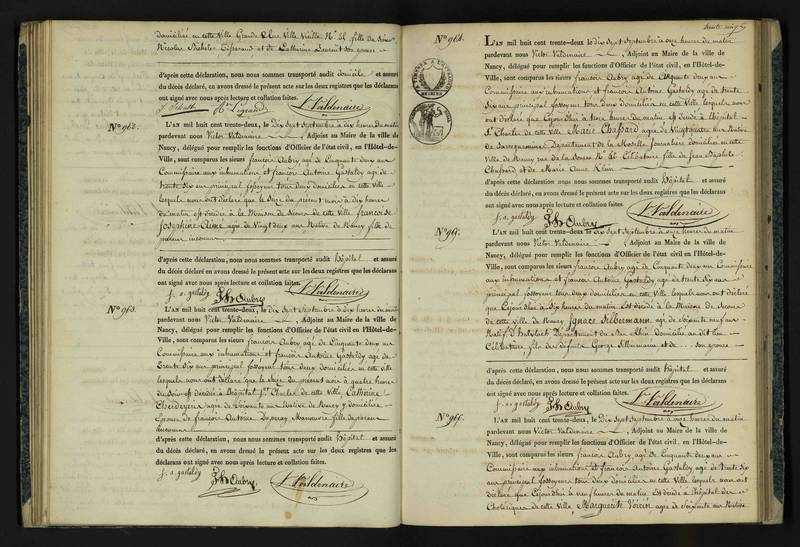 domiciliée en cette Ville Grande Rue Ville Vieille N° fille de
Nicolas Tisserand et de Catherine son épouse
d'après cette déclaration, nous nous sommes transporté audit domicile et assuré
du décès déclaré, en avons dressé le présent acte sur les deux registres que les déclarans
ont signé avec nous après lecture et collation faites.
Legrand L. Valdenaire
N° 962.
L'AN mil huit cent trente-deux, le Dix Sept Septembre à dix heures du matin
pardevant nous Victor Valdenaire, Adjoint au Maire de la ville de
Nancy, délégué pour remplir les fonctions d'Officier de l'état civil, en l'Hôtel-de-
Ville, sont comparus les sieurs françois Aubry agé de Cinquante deux ans
Commissaire aux inhumations et françois Antoine Gastaldy agé de
Trente Six ans principal fossoyeur tous deux domiciliés en cette Ville
lesquels nous ont déclaré que le Seize du présent mois à dix heures
du matin est décédée à la Maison de Secours de cette Ville francoise
Josephine Aimé agée de Vingt deux ans Native de Nancy fille de
père et mère inconnus
d'après cette déclaration, nous nous sommes transporté audit hôpital et assuré
du décès déclaré, en avons dressé le présent acte sur les deux registres que les déclarans
ont signé avec nous après lecture et collation faites.
f. a. gastaldy Aubry L. Valdenaire
N° 963.
L'AN mil huit cent trente-deux, le dix Sept Septembre à dix heures du matin
pardevant nous Victor Valdenaire, Adjoint au Maire de la ville de
Nancy, délégué pour remplir les fonctions d'Officier de l'état civil en l'Hôtel-de-
Ville, sont comparus les sieurs françois Aubry agé de Cinquante deux ans
Commissaire aux inhumations et françois Antoine Gastaldy agé de
Trente Six ans principal fossoyeur tous deux domiciliés en cette ville
lesquels nous ont déclaré que le Seize du présent mois à quatre heures
du Soir est décédée à l'hôpital St. Charles de cette Ville, Catherine
agée de Soixante ans Native de Nancy y domiciliée
Epouse de françois Antoine Manœuvre fille de parens
inconnus
d'après cette déclaration, nous nous sommes transporté audit hôpital et assuré
du décès déclaré, en avons dressé le présent acte sur les deux registres que les déclarans
ont signé avec nous après lecture et collation faites.
f. a. gastaldy
Aubry L. Valdenaire
trente cinq
N° 964.
L'AN mil huit cent trente-deux le dix Sept Septembre à onze heures du matin
pardevant nous Victor Valdenaire, Adjoint au Maire de la ville de
Nancy, délégué pour remplir les fonctions d'Officier de l'état civil, en l'Hôtel-de-
Ville, sont comparus les sieurs françois Aubry agé de Cinquante deux ans
Commissaire aux inhumations et françois Antoine Gastaldy agé de trente
Six ans principal fossoyeur tous deux domiciliés en cette Ville lesquels nous
ont déclaré que Cejourd'hui à heures du matin est décédée à l'hôpital
St. Charles de cette Ville Marie Chassard agée de Vingt quatre ans Native
de Sarreguemine Département de la Moselle Journalière domiciliée en cette
Ville de Nancy rue de la Source N° Célibataire fille de Jean Baptiste
Chassard et de Marie Anne Klein
d'après cette déclaration nous nous sommes transporté audit hôpital et assuré
du décès déclaré, en avons dressé le présent acte sur les deux registres que les déclarans
ont signé avec nous après lecture et collation faites.
f. a. gastaldy Aubry L. Valdenaire
N° 965.
L'AN mil huit cent trente-deux le dix Sept Septembre à onze heures du matin
pardevant nous Victor Valdenaire, Adjoint au Maire de la ville de
Nancy, délégué pour remplir les fonctions d'Officier de l'état civil, en l'Hôtel-de-
Ville, sont comparus les sieurs françois Aubry agé de Cinquante deux ans Commissaire
aux inhumations et françois Antoine Gastaldy agé de trente Six ans
principal fossoyeur tous deux domiciliés en cette Ville lesquels nous ont déclaré
que Cejourd'hui à Six heures du matin est décédé à la Maison de Secours
de cette ville de Nancy Ignace Silbermann agé de Soixante neuf ans
Natif d' Département du Bas Rhin Domicilié au dit lieu
Célibataire, fils des défunts George Silbermann et de son épouse
d'après cette déclaration, nous nous sommes transporté audit hôpital et assuré
du décès déclaré, en avons dressé le présent acte sur les deux registres que les déclarans
ont signé avec nous après lecture et collation faites.
f. a. gastaldy Aubry L. Valdenaire
N° 966.
L'AN mil huit cent trente-deux, le Dix Sept Septembre à onze heures du matin
pardevant nous Victor Valdenaire, Adjoint au Maire de la ville de
Nancy, délégué pour remplir les fonctions d'Officier de l'état civil, en l'Hôtel-de-
Ville, sont comparus les sieurs françois Aubry agé de Cinquante deux ans
Commissaire aux inhumations et françois Antoine Gastaldy agé de Trente Six
ans principal fossoyeur tous deux domiciliés en cette Ville lesquels nous ont
déclaré que Cejourd'hui à neuf heures du matin est décédée à l'hôpital des
Cholériques de cette Ville, Marguerite Voirin agée de Soixante ans Native